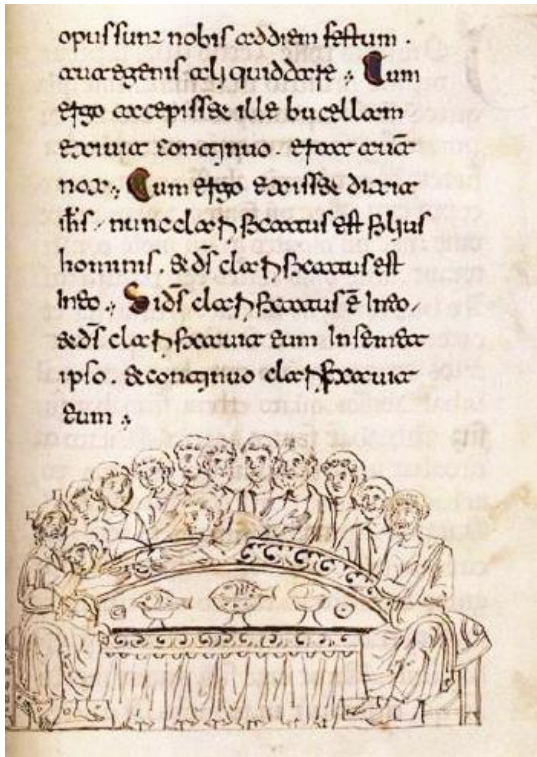 opus sunt nobis ad diem festum .
aut egenis aliquid daret . Cum
ergo accepisset ille bucellam
exiuit continuo . erat autē
nox . Cum ergo exisset dixit
ih̄s . nunc clarificatus est filius
hominis . & d̄s clarificatus est
in eo . Si d̄s clarificatus ē in eo .
& d̄s clarificauit eum in semet
ipso . & continuo clarificauit
eum .